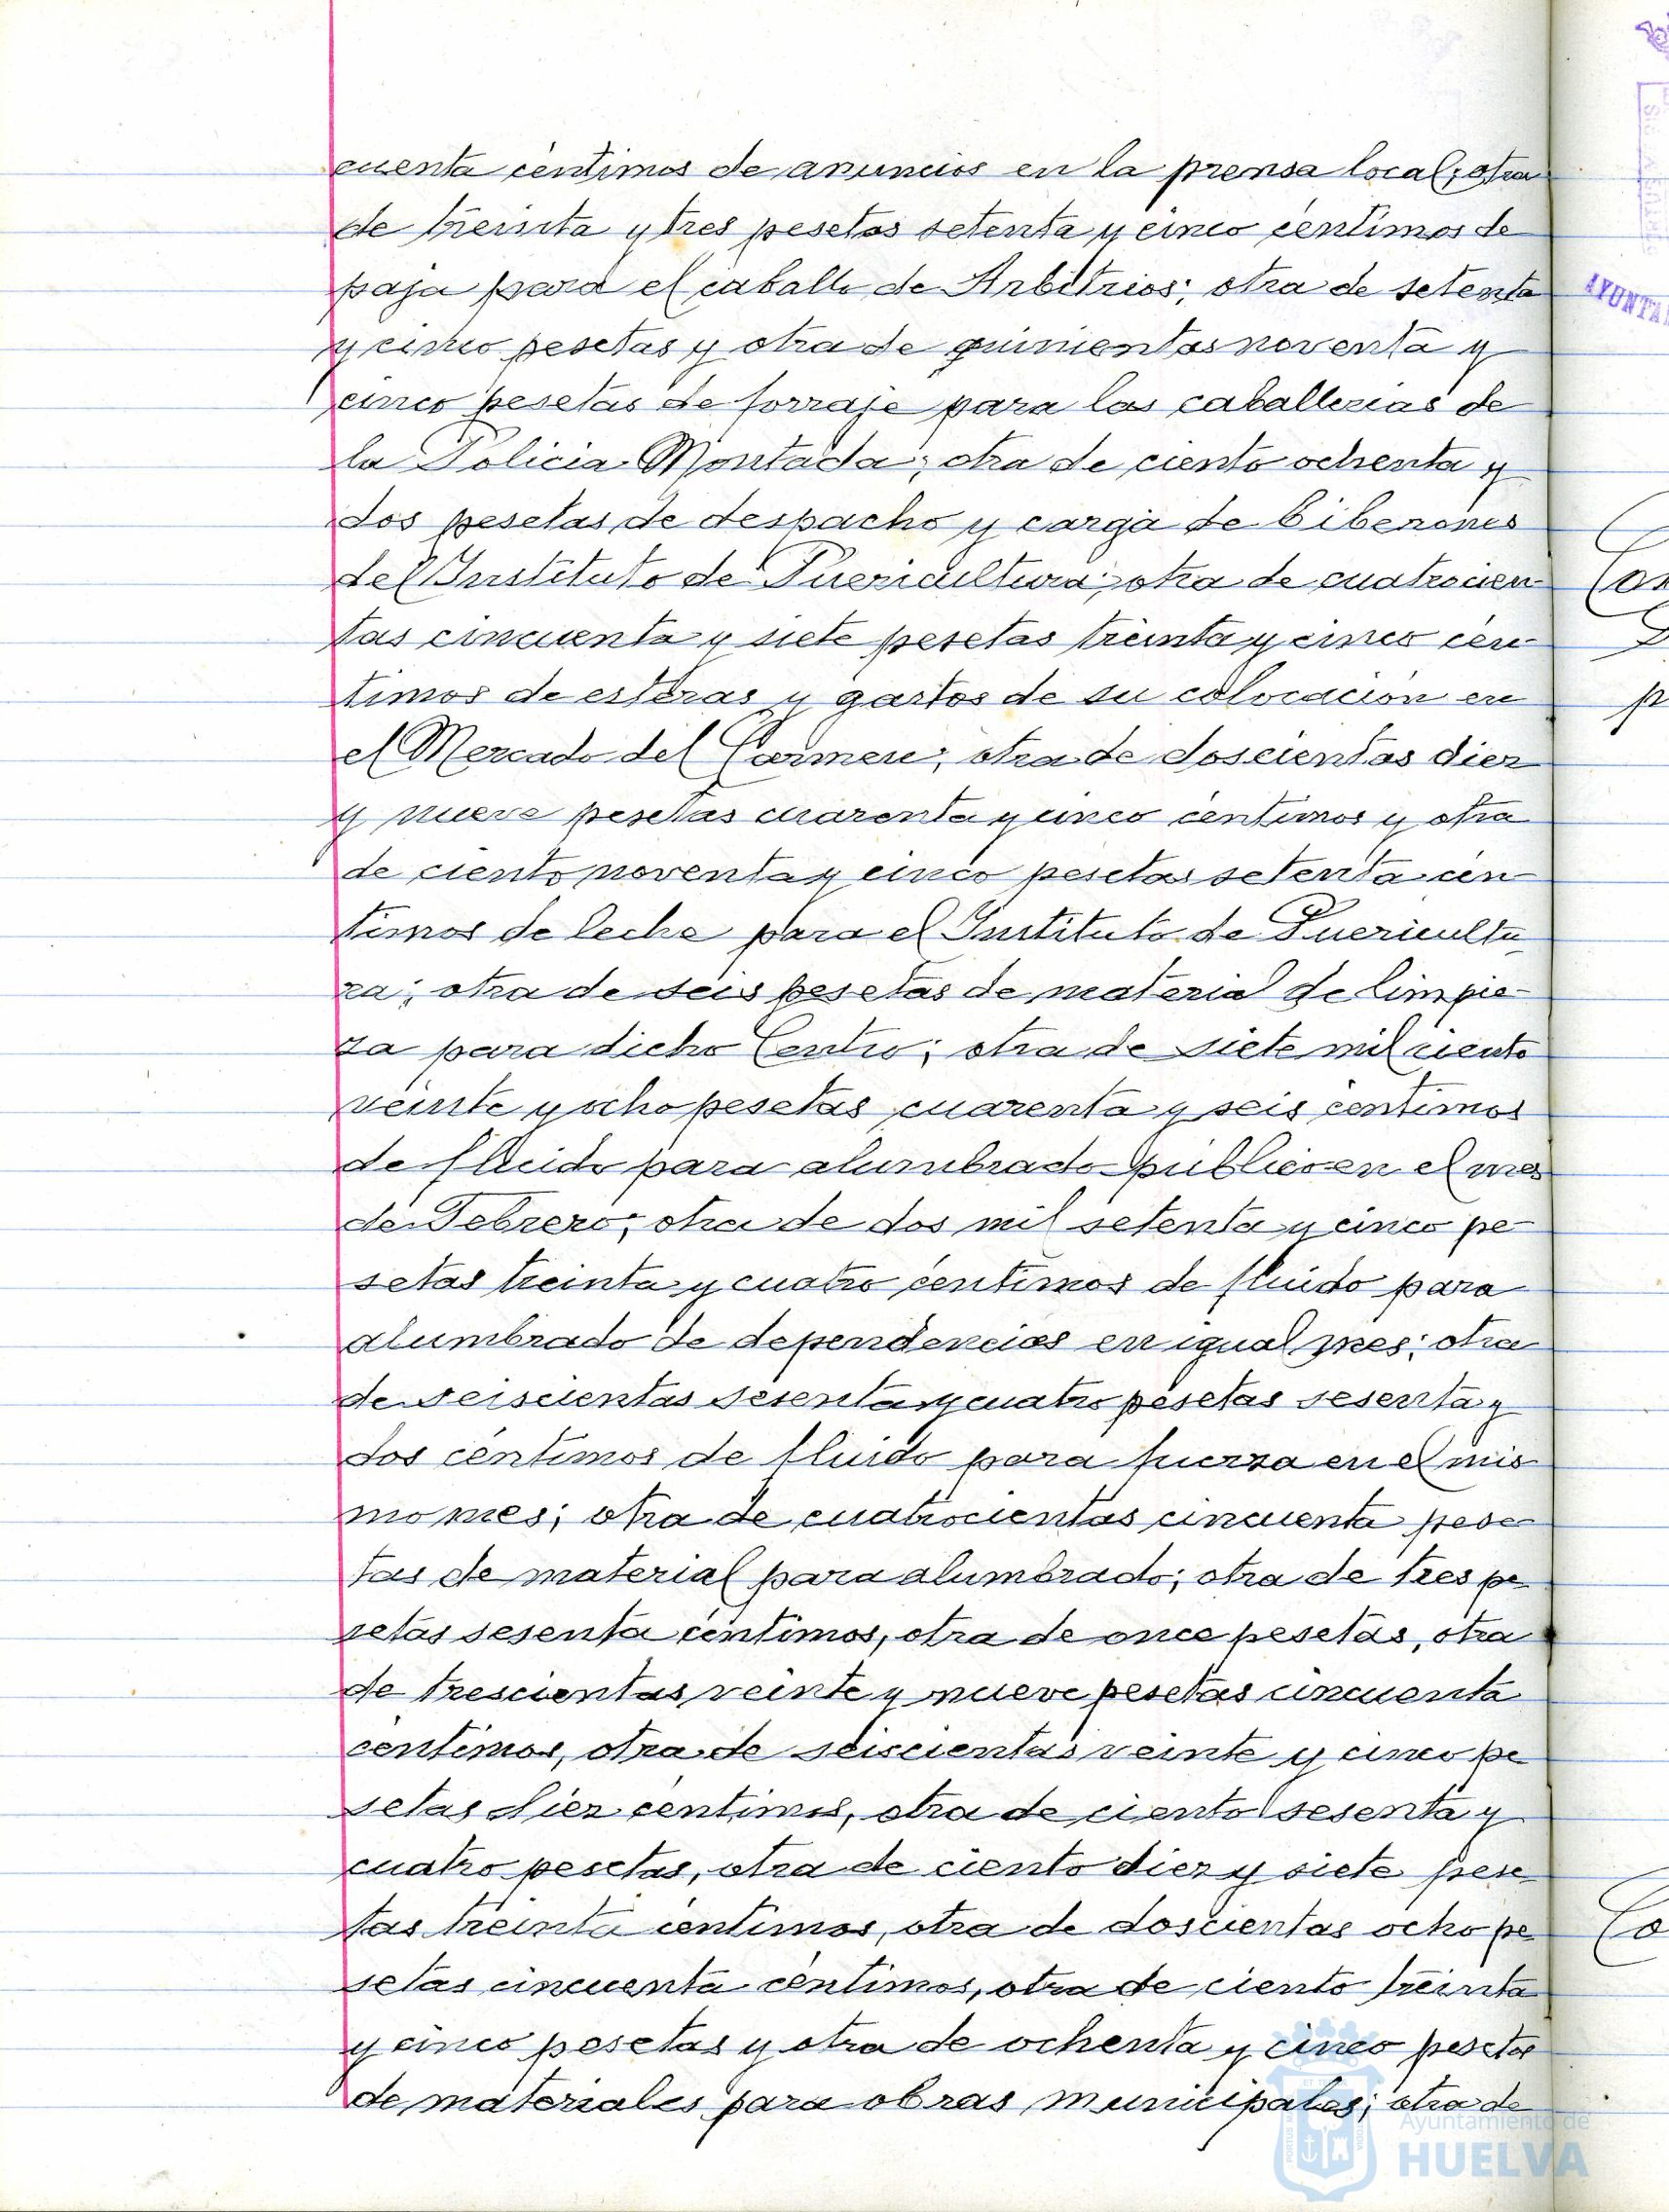 cuenta céntimos de anuncios en la prensa local; otra
de treinta y tres pesetas setenta y cinco céntimos de
paja para el caballo de Arbitrios; otra de setenta
y cinco pesetas y otra de quinientas noventa y
cinco pesetas de forraje para las caballerias de
la Policia Montada; otra de ciento ochenta y
dos pesetas de despacho y carga de biberones
del Instituto de Puericultura; otra de cuatrocien-
tas cincuenta y siete pesetas treinta y cinco cén-
timos de esteras y gastos de su colocación en
el Mercado del Carmen; otra de doscientas diez
y nueve pesetas cuarenta y cinco céntimos y otra
de ciento noventa y cinco pesetas setenta cén-
timos de leche para el Instituto de Puericultu-
ra; otra de seis pesetas de material de limpie-
za para dicho Centro; otra de siete mil ciento
veinte y ocho pesetas cuarenta y seis céntimos
de fluido para alumbrado público en el mes
de Febrero; otra de dos mil setenta y cinco pe-
setas treinta y cuatro céntimos de fluido para
alumbrado de dependencias en igual mes; otra
de seiscientas sesenta y cuatro pesetas sesenta y
dos céntimos de fluido para fuerza en el mis-
mo mes; otra de cuatrocientas cincuenta pese-
tas de material para alumbrado; otra de tres pe-
setas sesenta céntimos, otra de once pesetas, otra
de trescientas veinte y nueve pesetas cincuenta
céntimos, otra de seiscientas veinte y cinco pe-
setas diez céntimos, otra de ciento sesenta y
cuatro pesetas, otra de ciento diez y siete pese-
tas treinta céntimos, otra de doscientas ocho pe-
setas cincuenta céntimos, otra de ciento treinta
y cinco pesetas y otra de ochenta y cinco pesetas
de materiales para obras municipales; otra de
AYUNTA
Ayuntamiento de
HUELVA